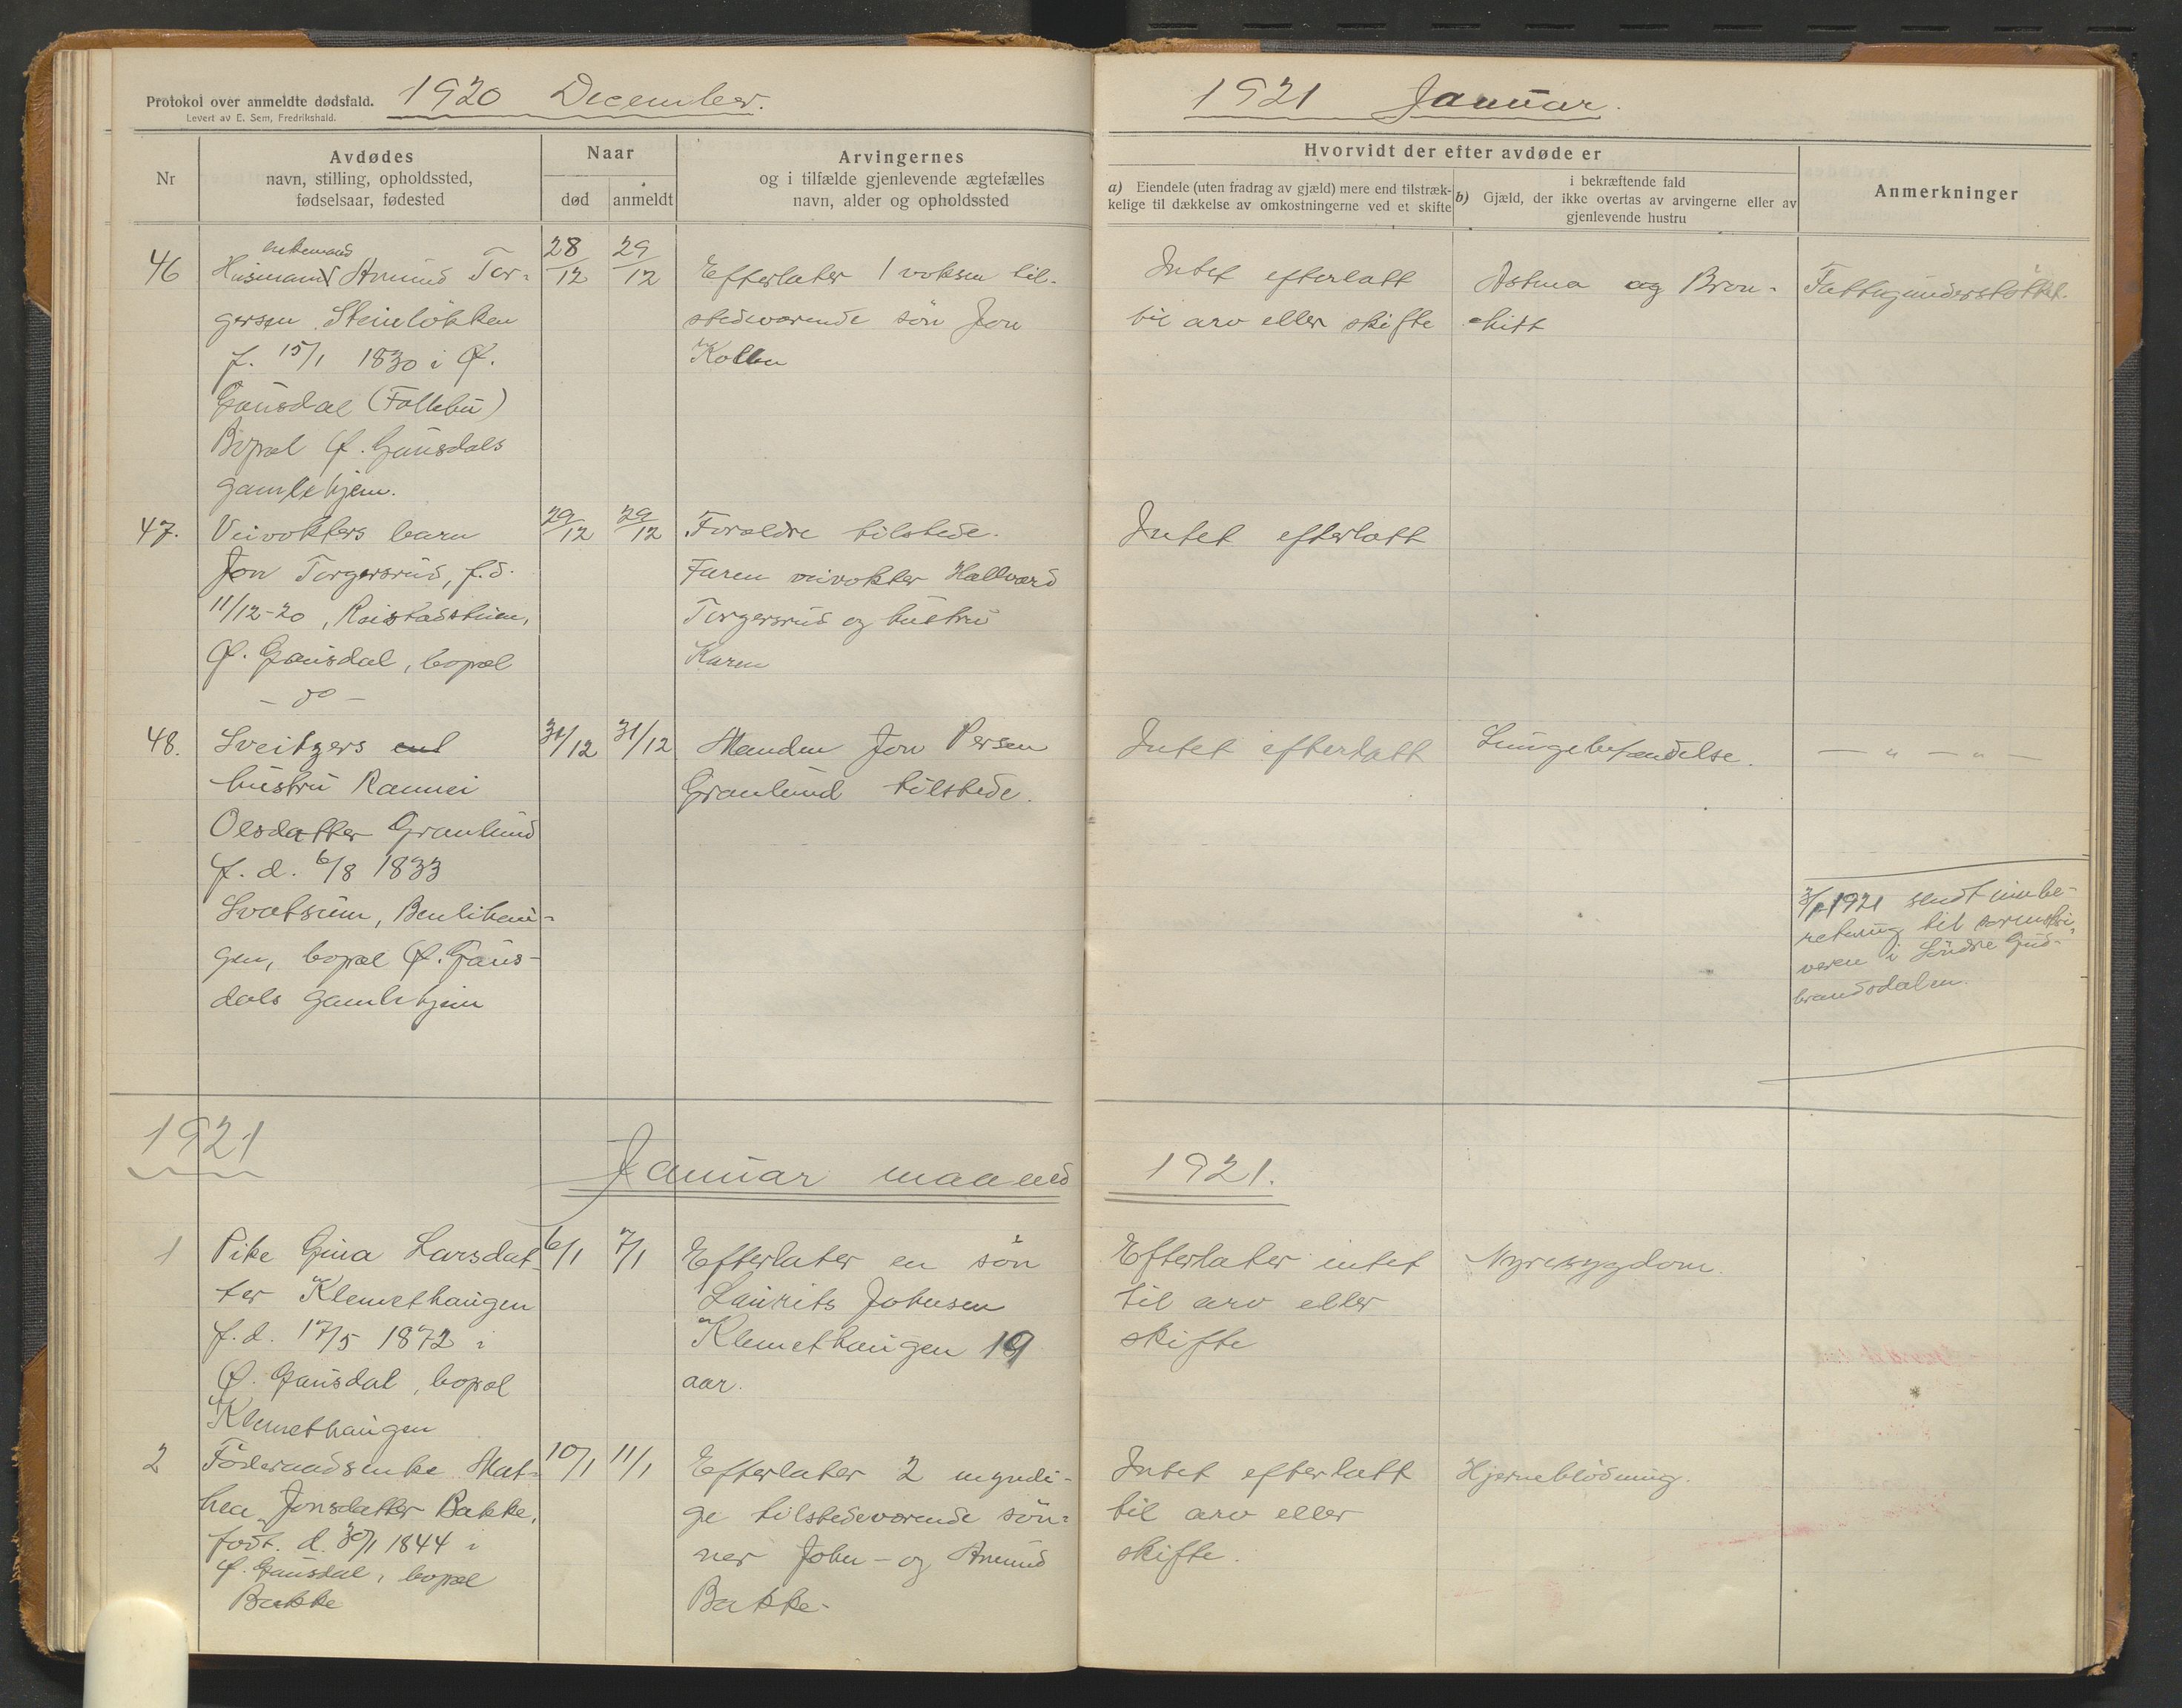 Protokol over anmeldte dødsfald.
Levert av E. Sem, Fredrikshald.
1920 December.
1921 Januar.
Nr
Avdødes
navn, stilling, opholdssted,
fødselsaar, fødested
Naar
død
anmeldt
Arvingernes
og i tilfælde gjenlevende ægtefælles
navn, alder og opholdssted
Hvorvidt der efter avdøde er
a) Eiendele (uten fradrag av gjæld) mere end tilstræk-
kelige til dækkelse av omkostningerne ved et skifte
b)
i bekræftende fald
Gjæld, der ikke overtas av arvingerne eller av
gjenlevende hustru
Anmerkninger
46
enkemand
Husmand Amund Tor-
gersen Steinløkken
f. 15/1 1830 i Ø.
Gausdal (Follebu)
Bopæl Ø. Gausdals
gamlehjem.
28/12
29/12
Efterlater 1 voksen til-
stedeværende søn Jon
Kollen
Intet efterlatt
til arv eller skifte
Astma og Bron-
chitt
Fattigunderstøttet.
47.
Veivokters barn
Jon Torgersrud, f.d.
11/12-20, Raistadstuen,
Ø. Gausdal, bopæl
- do -
29/12
29/12
Forældre tilstede.
Faren veivokter Hallvard
Torgersrud og hustru
Karen
Intet efterlatt
48.
Sveitzers enk
hustru Rannei
Olsdatter Granlund
f. d. 6/8 1833
Svatsum, Benlihau-
gen, bopæl Ø. Gaus-
dals gamlehjem
31/12
31/12
Manden Jon Persen
Granlund tilstede.
Intet efterlatt
Lungebetændelse.
— " — " —
3/1-1921 sendt innbe-
retning til sorenskri-
veren i Søndre Gud-
brandsdalen.
1921
Januar maaned 1921.
1
Pike Gina Larsdat-
ter Klemethaugen
f.d. 17/5 1872 i
Ø. Gausdal, bopæl
Klemethaugen
6/1
7/1
Efterlater en søn
Laurits Johnsen
Klemethaugen 19
aar.
Efterlater intet
til arv eller
skifte
Nyresygdom.
2
Føderaadsenke Mat-
hea Jonsdatter Bakke,
født. d. 30/1 1844 i
Ø. Gausdal, bopæl
Bakke
10/1
11/1
Efterlater 2 myndi-
ge tilstedeværende søn-
ner John - og Amund
Bakke.
Intet efterlatt
til arv eller
skifte.
Hjerneblødning.